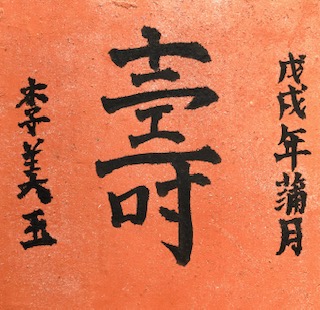 戊戌年蒲月
壽
李美玉